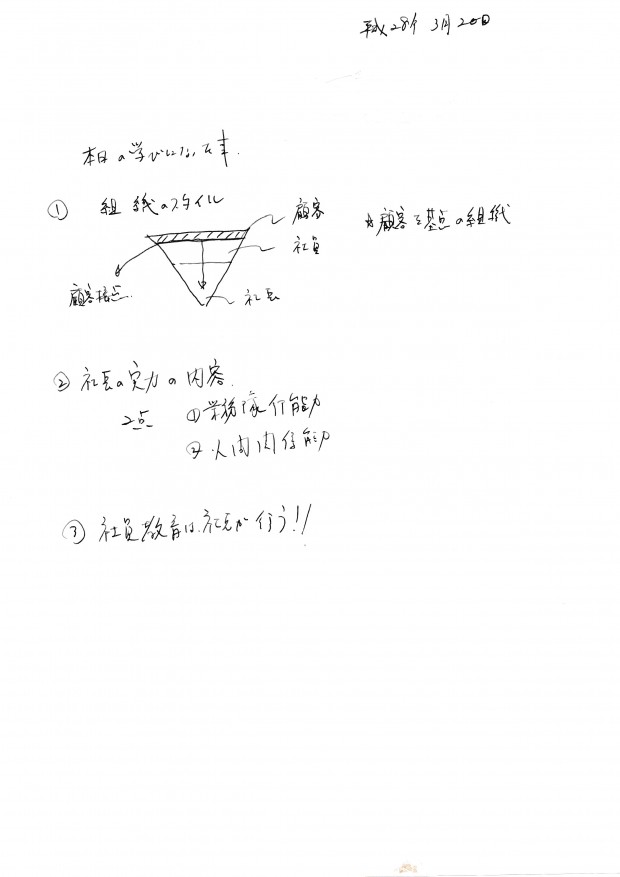 平成28年 3月20日
本日の学びになった事.
① 組織のスタイル
顧客
☆顧客を基点の組織
社員
顧客接点.
社長
② 社長の実力の内容.
2点 ①業務遂行能力
② 人間関係能力
③ 社員教育は、社長が行う!!